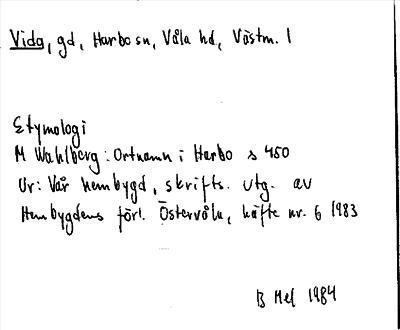 Vida, gd, Harbo sn, Våla hd, Västm. l
Etymologi
M Wahlberg: Ortnamn i Harbo s 450
Ur: Vår hembygd, skrifts. utg. av
Hembygdens förl. Östervåla, häfte nr. 6 1983
B Hel 1984